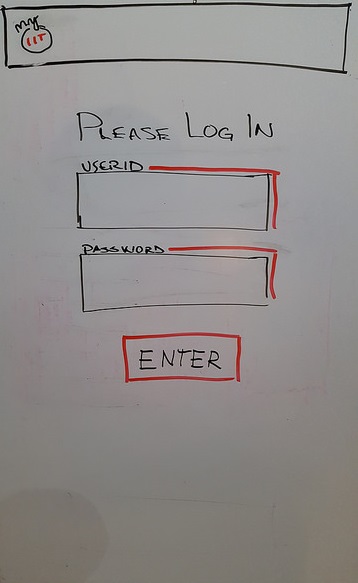 my
IIT
PLEASE LOG IN
USERID
PASSWORD
ENTER